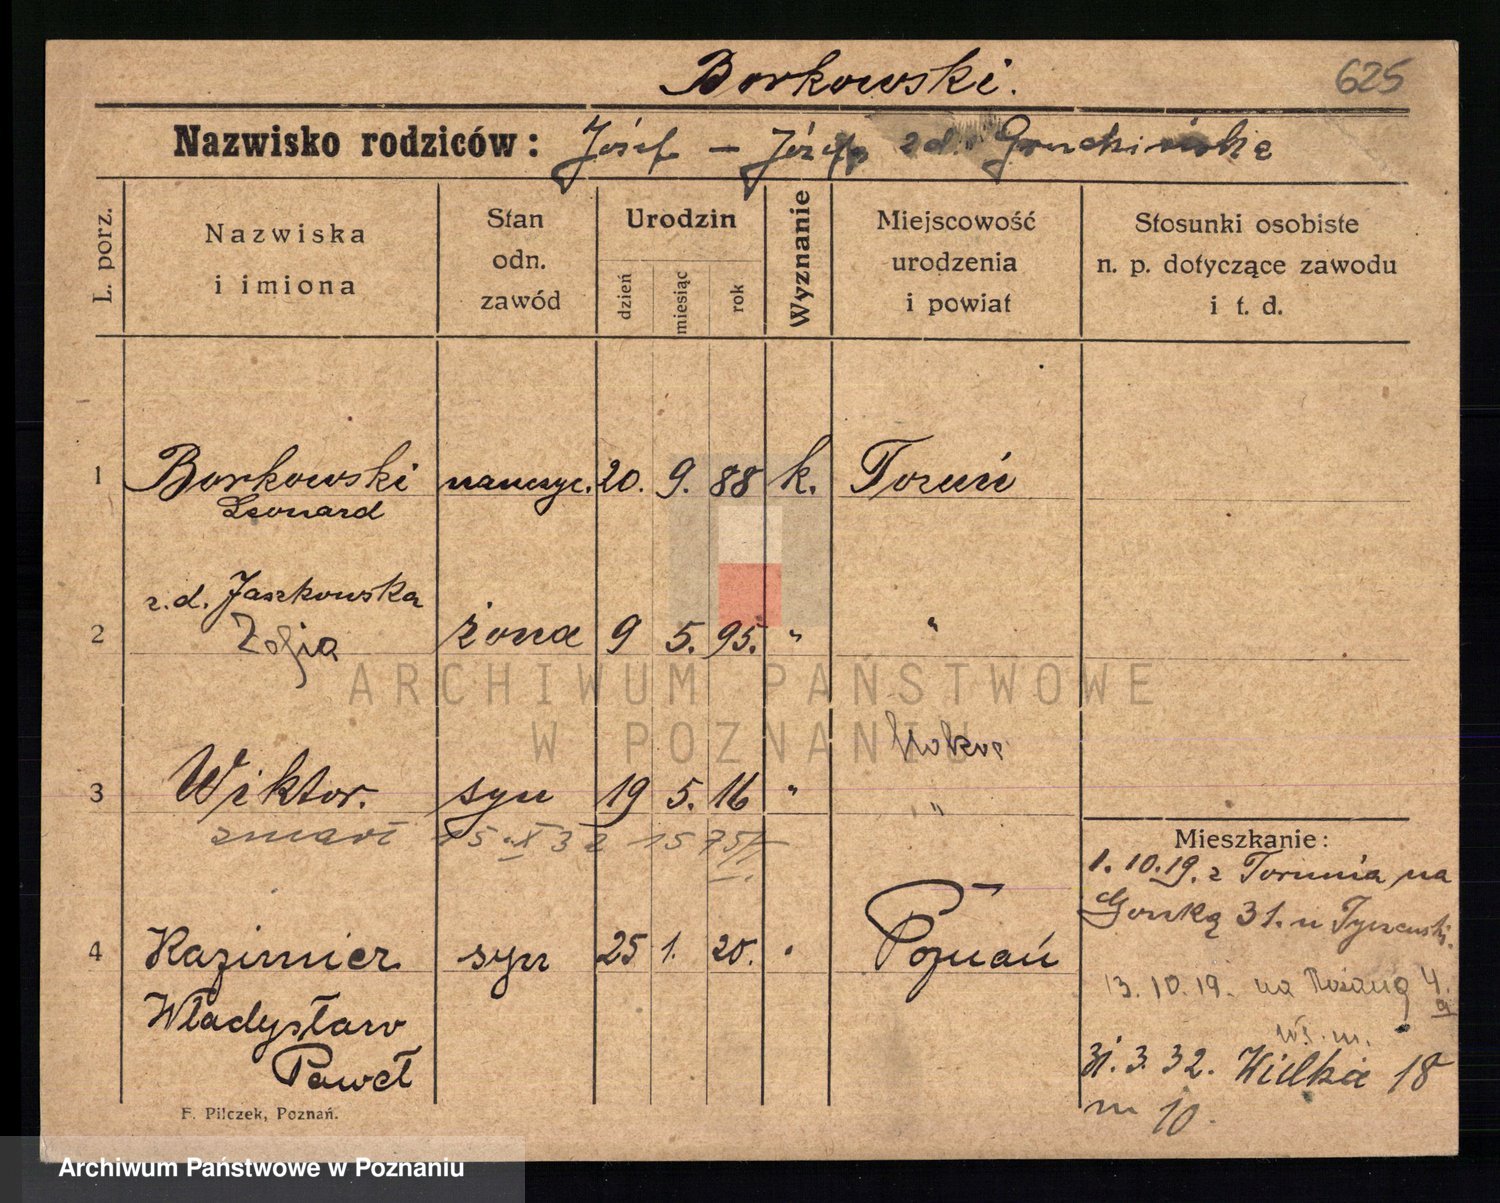 Borkowski.
625
Nazwisko rodziców: Józef – Józefa z d.
L. porz.
Nazwiska
i imiona
Stan
odn.
zawód
Urodzin
dzień
miesiąc
rok
Wyznanie
Miejscowość
urodzenia
i powiat
Stosunki osobiste
n. p. dotyczące zawodu
i t. d.
1 Borkowski nauczyc. 20. 9. 88 k. Toruń
Leonard
z.d. Jaszkowska
2 Zofia żona 9 5. 95. " "
ARCHIWUM PAŃSTWOWE
W POZNANIU
3 Wiktor. syn 19 5. 16 " "
zmarł 15 X 32
Mieszkanie:
1. 10.19. z Torunia na
31. u
4 Kazimierz syn 25 1. 20. " Poznań
Władysław
Paweł
13. 10. 19. na 4.
31. 3. 32. Wielka 18
m 10.
F. Pilczek, Poznań.
Archiwum Państwowe w Poznaniu